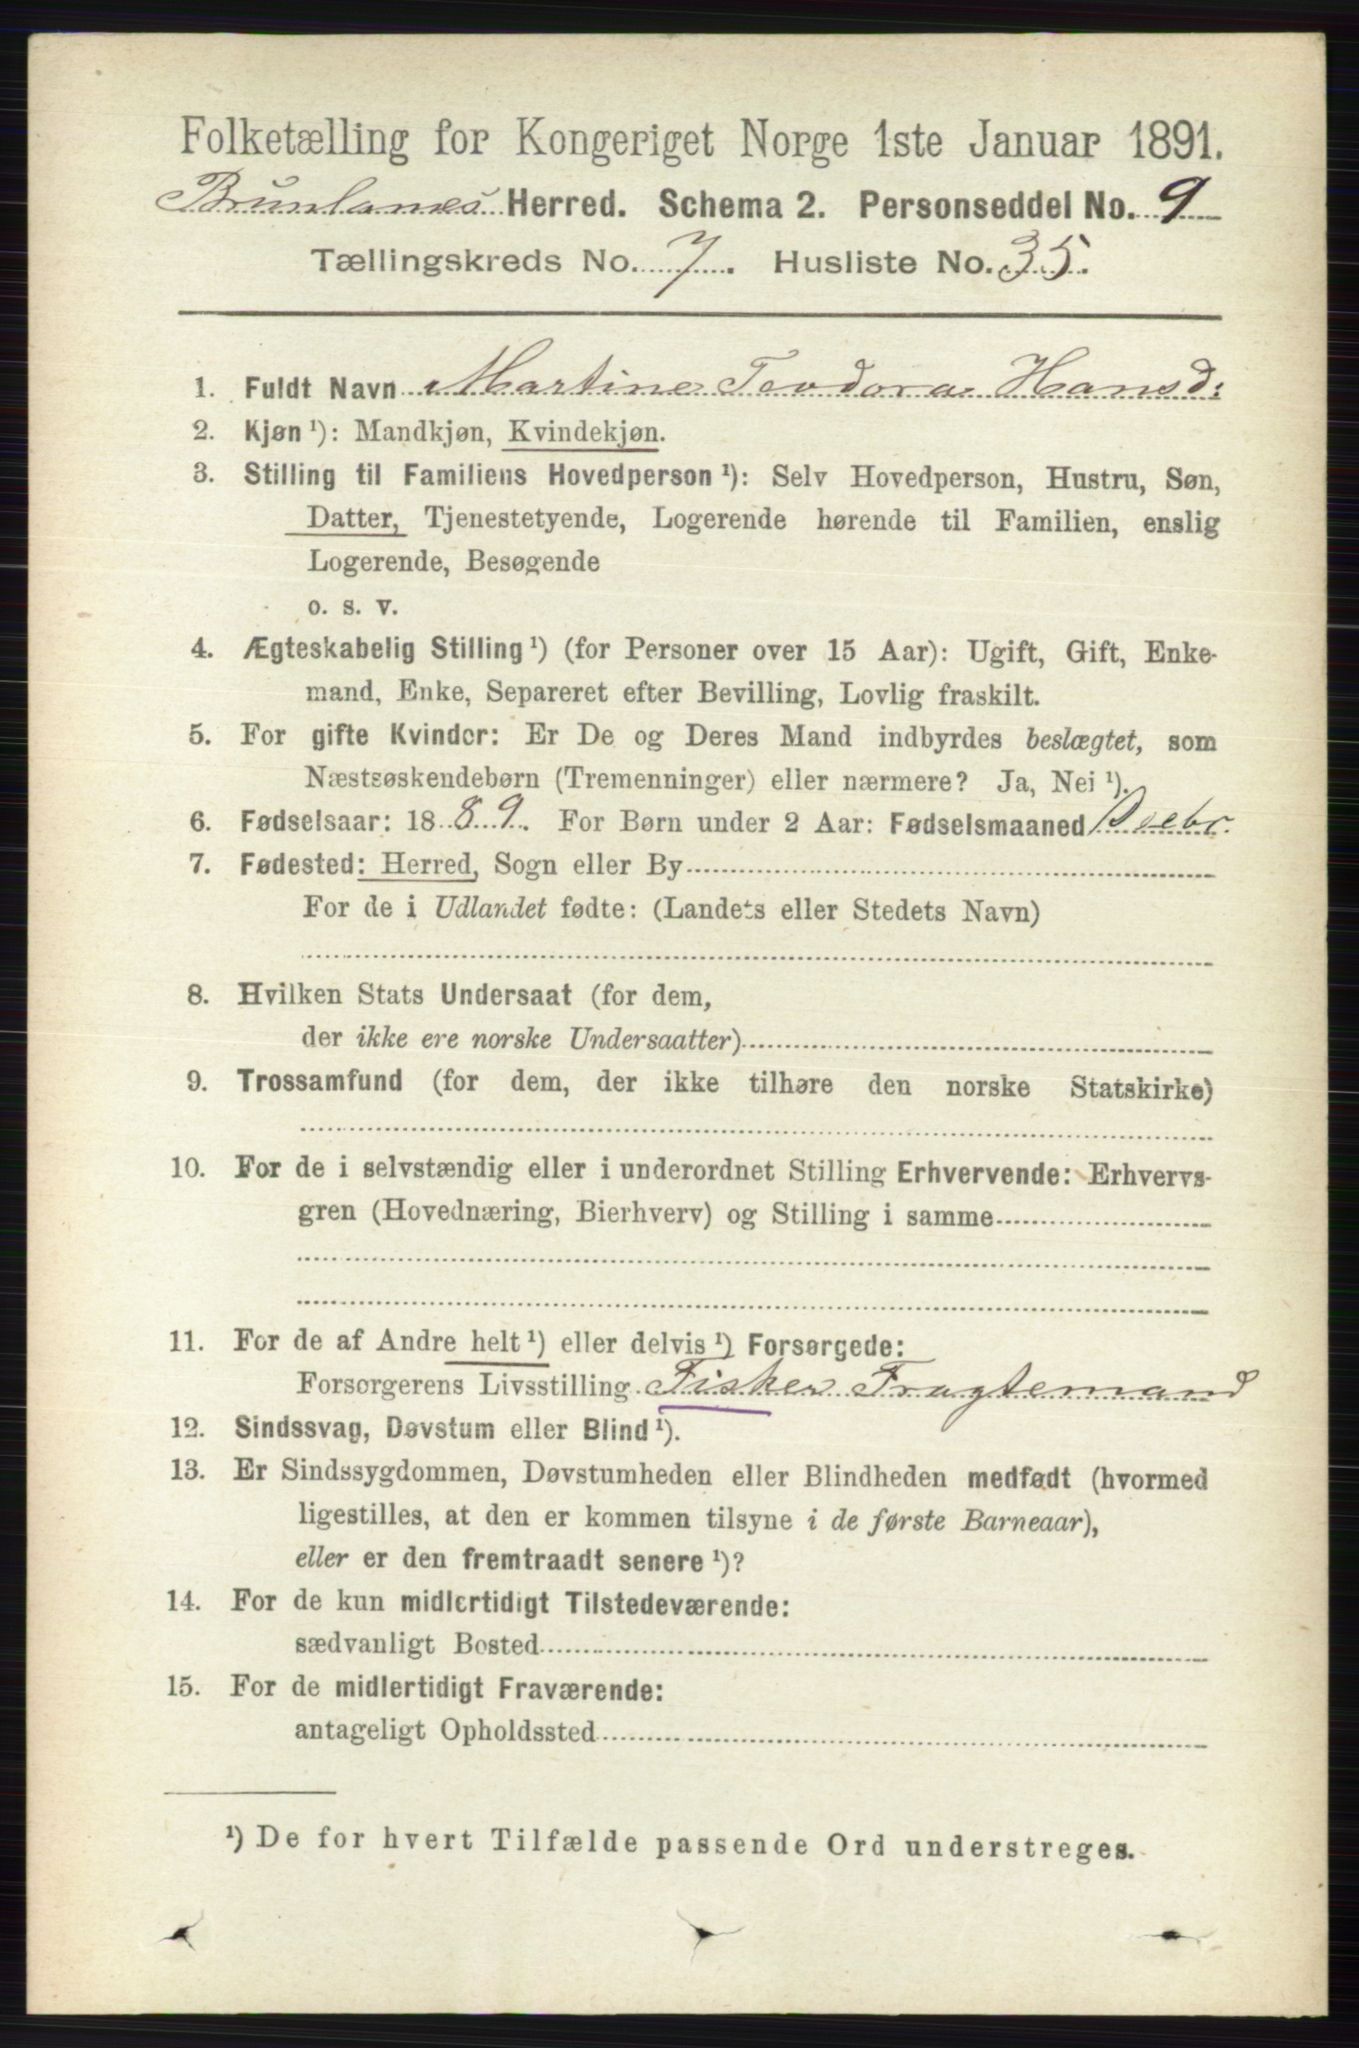 Folketælling for Kongeriget Norge 1ste Januar 1891.
Brunlanes Herred. Schema 2. Personseddel No. 9
Tællingskreds No. 7. Husliste No. 35.
1. Fuldt Navn Martine Teodora Hansd:
2. Kjøn ¹): Mandkjøn, Kvindekjøn.
3. Stilling til Familiens Hovedperson ¹): Selv Hovedperson, Hustru, Søn,
Datter, Tjenestetyende, Logerende hørende til Familien, enslig
Logerende, Besøgende
o. s. v.
4. Ægteskabelig Stilling ¹) (for Personer over 15 Aar): Ugift, Gift, Enke-
mand, Enke, Separeret efter Bevilling, Lovlig fraskilt.
5. For gifte Kvinder: Er De og Deres Mand indbyrdes beslægtet, som
Næstsøskendebørn (Tremenninger) eller nærmere? Ja, Nei ¹).
6. Fødselsaar: 1889. For Børn under 2 Aar: Fødselsmaaned Debr.
7. Fødested: Herred, Sogn eller By
For de i Udlandet fødte: (Landets eller Stedets Navn)
8. Hvilken Stats Undersaat (for dem,
der ikke ere norske Undersaatter)
9. Trossamfund (for dem, der ikke tilhøre den norske Statskirke)
10. For de i selvstændig eller i underordnet Stilling Erhvervende: Erhvervs-
gren (Hovednæring, Bierhverv) og Stilling i samme
11. For de af Andre helt ¹) eller delvis ¹) Forsørgede:
Forsorgerens Livsstilling Fisker Fragtemand
12. Sindssvag, Døvstum eller Blind ¹).
13. Er Sindssygdommen, Døvstumheden eller Blindheden medfødt (hvormed
ligestilles, at den er kommen tilsyne i de første Barneaar),
eller er den fremtraadt senere ¹)?
14. For de kun midlertidigt Tilstedeværende:
sædvanligt Bosted
15. For de midlertidigt Fraværende:
antageligt Opholdssted
¹) De for hvert Tilfælde passende Ord understreges.